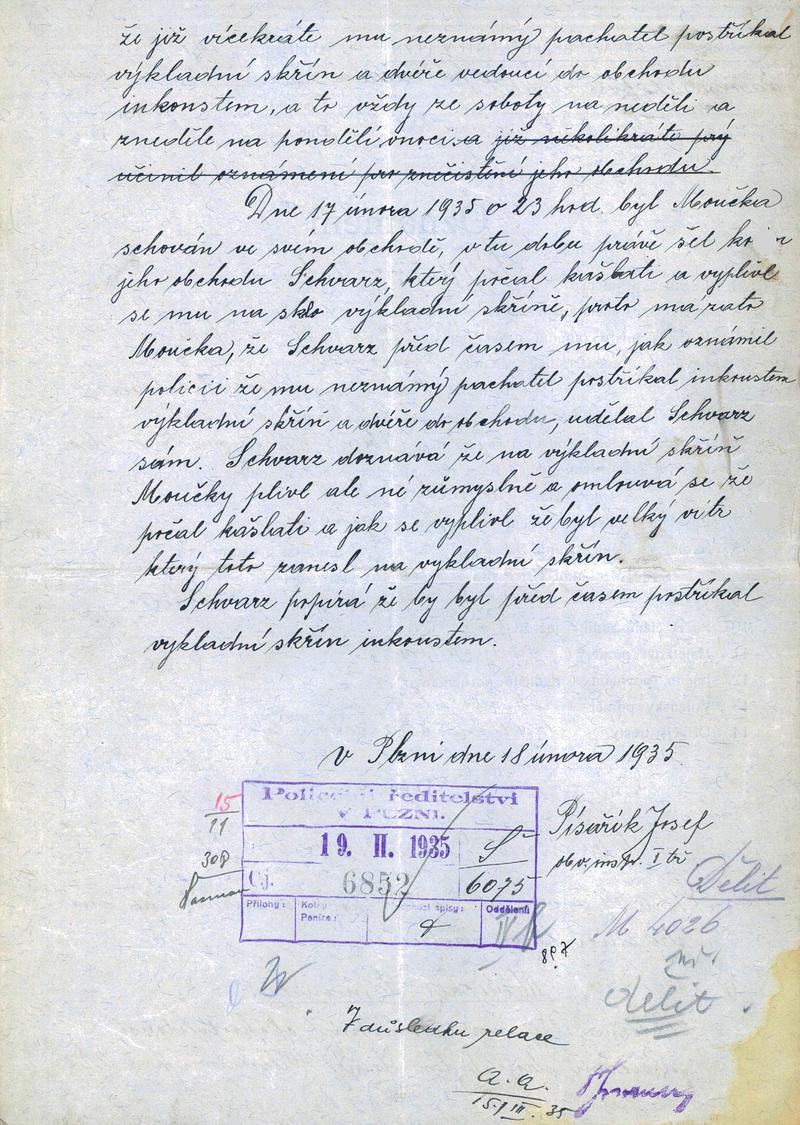 že již vícekráte mu neznámý pachatel postříkal
výkladní skřín a dvéře vedoucí do obchodu
inkoustem, a to vždy ze soboty na neděli a
zneděle na pondělí, vnoci. a již několikráte prý
učinil oznámení pro znečistění jeho obchodu.
Dne 17 února 1935 o 23 hod. byl Moučka
schován ve svém obchodě, v tu dobu právě šel ko
jeho obchodu Schvarz, který počal kašlati a vyplivl
se mu na sklo výkladní skříně, proto má zato
Moučka, že Schvarz před časem mu, jak oznámil
policii že mu neznámý pachatel postříkal inkoustem
výkladní skříň a dvéře do obchodu, udělal Schvarz
sám. Schvarz doznává že na výkladní skříň
Moučky plivl ale né zůmyslně a omlouvá se že
počal kašlati a jak se vyplivl že byl velký vítr
který toto zanesl na vykladní skřín.
Schvarz popírá že by byl před časem postříkal
vykladní skřín inkoustem.
v Plzni dne 18 února 1935.
Policejní ředitelství
V PLZNI.
15
11
308
19. II. 1935
Čj. 6852
6075
Přílohy:
Kolky
Peníze:
spisy:
Oddělení
Písařík Josef
obv. instr. I tř
Dělit
M 4026
delit
Z důsledku relace
a. a.
15./III. 35